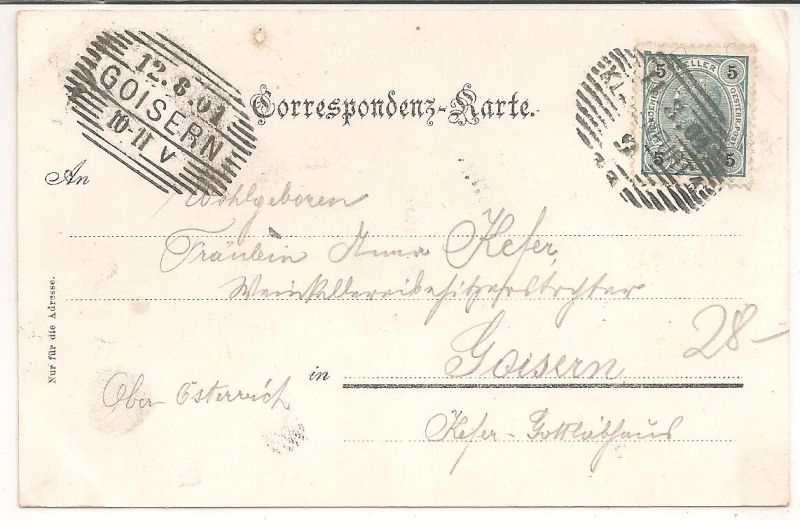 12.8.01
GOISERN
10-11 V
Correspondenz-Karte.
5 HELLER 5
5 5
An
Wohlgeboren
Fräulein Anna Kefer,
Weinkellereibesitzerstochter
in Goisern
28-
Ober Österreich
Kefer-Gottliebhaus
Nur für die Adresse.